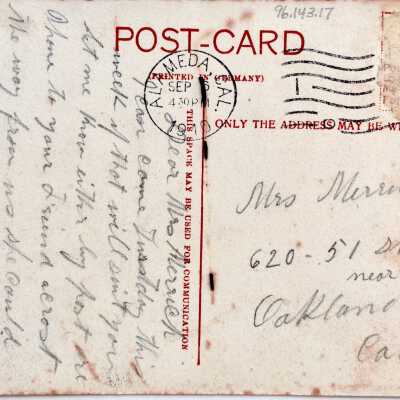 96.143.17
POST-CARD
(PRINTED IN GERMANY)
ALAMEDA, CAL.
SEP
430PM
1910
THIS SPACE MAY BE USED FOR COMMUNICATION
ONLY THE ADDRESS MAY BE W
Dear Mrs Merrick
I can come Tuesday this
week if that will suit you.
Let me know either by post or
phone to your friend across
the way from us she could
Mrs Merri
620-51 S
near
Oakland
Ca